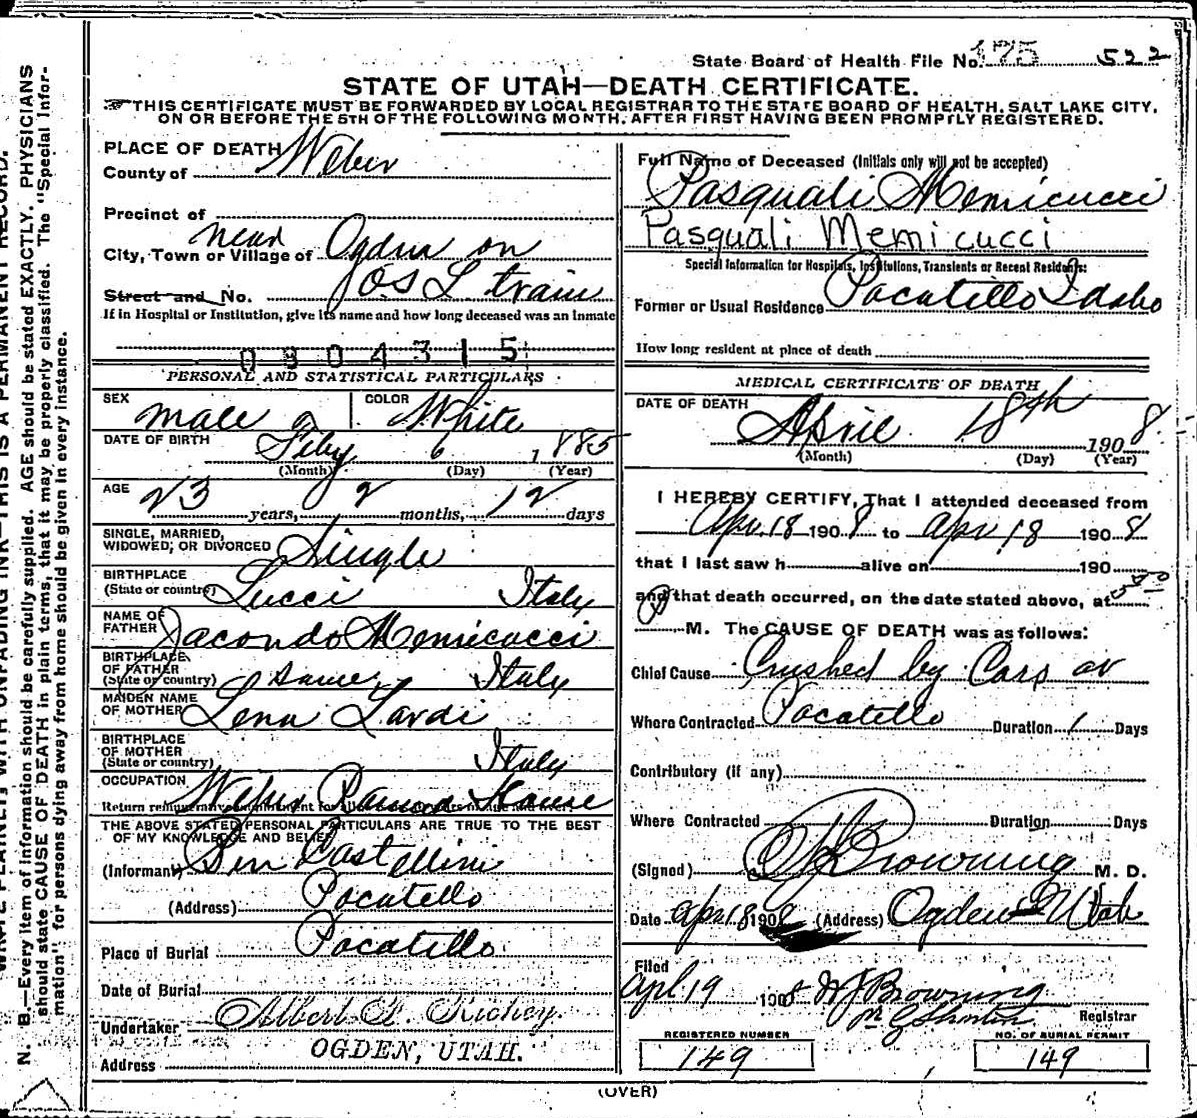 State Board of Health File No. 175 522
STATE OF UTAH—DEATH CERTIFICATE.
THIS CERTIFICATE MUST BE FORWARDED BY LOCAL REGISTRAR TO THE STATE BOARD OF HEALTH, SALT LAKE CITY,
ON OR BEFORE THE 5TH OF THE FOLLOWING MONTH, AFTER FIRST HAVING BEEN PROMPTLY REGISTERED.
PLACE OF DEATH
County of Weber
Precinct of
City, Town or Village of near Ogden on
Street and No. OSL train
If in Hospital or Institution, give its name and how long deceased was an inmate
0804315
PERSONAL AND STATISTICAL PARTICULARS
SEX male COLOR White
DATE OF BIRTH Feby 6 1885
(Month) (Day) (Year)
AGE 23 years, 2 months, 12 days
SINGLE, MARRIED,
WIDOWED, OR DIVORCED Single
BIRTHPLACE
(State or country) Lucci Italy
NAME OF
FATHER Jacondo Memicucci
BIRTHPLACE
OF FATHER
(State or country) same Italy
MAIDEN NAME
OF MOTHER Lena Lardi
BIRTHPLACE
OF MOTHER
(State or country) Italy
OCCUPATION
THE ABOVE STATED PERSONAL PARTICULARS ARE TRUE TO THE BEST
OF MY KNOWLEDGE AND BELIEF
(Informant) Castellini
(Address) Pocatello
Place of Burial Pocatello
Date of Burial
Undertaker Albert F. Richey.
Address OGDEN, UTAH.
Full Name of Deceased (Initials only will not be accepted)
Pasquali Memicucci
Pasquali Memicucci
Special Information for Hospitals, Institutions, Transients or Recent Residents:
Former or Usual Residence Pocatillo Idaho
How long resident at place of death
MEDICAL CERTIFICATE OF DEATH
DATE OF DEATH
April 18th 1908
(Month) (Day) (Year)
I HEREBY CERTIFY, That I attended deceased from
Apr. 18 1908 to Apr 18 1908
that I last saw h alive on 190
and that death occurred, on the date stated above, at
M. The CAUSE OF DEATH was as follows:
Chief Cause Crushed by Cars at
Where Contracted Pocatello Duration 1 Days
Contributory (if any)
Where Contracted Duration Days
(Signed) Browning M. D.
Date Apr 18 1908 (Address) Ogden Utah
Filed
Apl 19 1908 Browning
Registrar
REGISTERED NUMBER
149
NO. OF BURIAL PERMIT
149
(OVER)
N. B.—Every item of information should be carefully supplied. AGE should be stated EXACTLY. PHYSICIANS
should state CAUSE OF DEATH in plain terms, that it may be properly classified. The "Special Infor-
mation" for persons dying away from home should be given in every instance.
WRITE PLAINLY WITH UNFADING INK—THIS IS A PERMANENT RECORD.